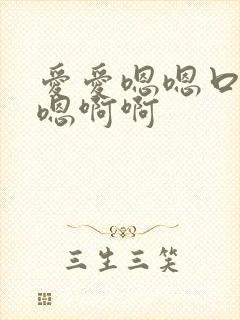 爱爱嗯嗯口
嗯啊啊
三生三笑